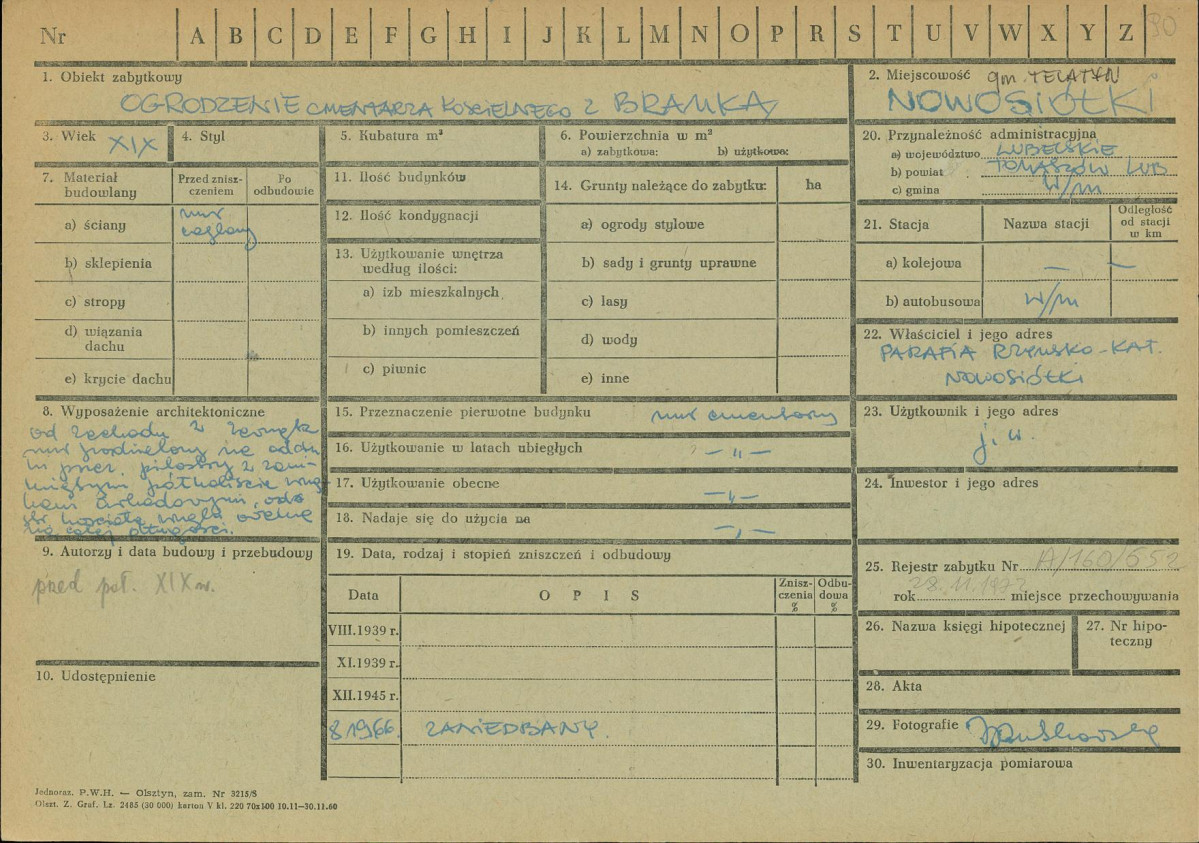 Nr A B C D E F G H I J K L M N O P R S T U V W X Y Z 90
1. Obiekt zabytkowy
OGRODZENIE CMENTARZA KOŚCIELNEGO Z BRAMKĄ
2. Miejscowość gm. TELATYN
NOWOSIÓŁKI
3. Wiek XIX
4. Styl
5. Kubatura m³
6. Powierzchnia w m²
a) zabytkowa: b) użytkowa:
20. Przynależność administracyjna
a) województwo LUBELSKIE
b) powiat TOMASZÓW LUB
c) gmina w/m
7. Materiał budowlany
Przed zniszczeniem
Po odbudowie
a) ściany mur ceglany
b) sklepienia
c) stropy
d) wiązania dachu
e) krycie dachu
11. Ilość budynków
12. Ilość kondygnacji
13. Użytkowanie wnętrza według ilości:
a) izb mieszkalnych
b) innych pomieszczeń
c) piwnic
14. Grunty należące do zabytku: ha
a) ogrody stylowe
b) sady i grunty uprawne
c) lasy
d) wody
e) inne
21. Stacja
Nazwa stacji
Odległość od stacji w km
a) kolejowa — —
b) autobusowa w/m
22. Właściciel i jego adres
PARAFIA RZYMSKO-KAT.
NOWOSIÓŁKI
8. Wyposażenie architektoniczne
od zachodu z zewnątrz
mur podzielony na odcin
ki przez pilastry z zam-
kniętymi półkoliście wnę
kami arkadowymi, od
str. kościoła wnęka
na całej długości.
15. Przeznaczenie pierwotne budynku mur cmentarny
16. Użytkowanie w latach ubiegłych — „ —
17. Użytkowanie obecne — „ —
18. Nadaje się do użycia na — „ —
23. Użytkownik i jego adres
j.w.
24. Inwestor i jego adres
9. Autorzy i data budowy i przebudowy
przed poł. XIX w.
19. Data, rodzaj i stopień zniszczeń i odbudowy
Data
OPIS
Zniszczenia %
Odbudowa %
VIII.1939 r.
XI.1939 r.
XII.1945 r.
8 1966. ZANIEDBANY.
25. Rejestr zabytku Nr A/160/552
rok 28.11.1972 miejsce przechowywania
26. Nazwa księgi hipotecznej
27. Nr hipoteczny
10. Udostępnienie
28. Akta
29. Fotografie
30. Inwentaryzacja pomiarowa
Jednoraz. P.W.H. — Olsztyn, zam. Nr 3215/S
Olszt. Z. Graf. Lz. 2485 (30 000) karton V kl. 220 70x100 10.11—30.11.60